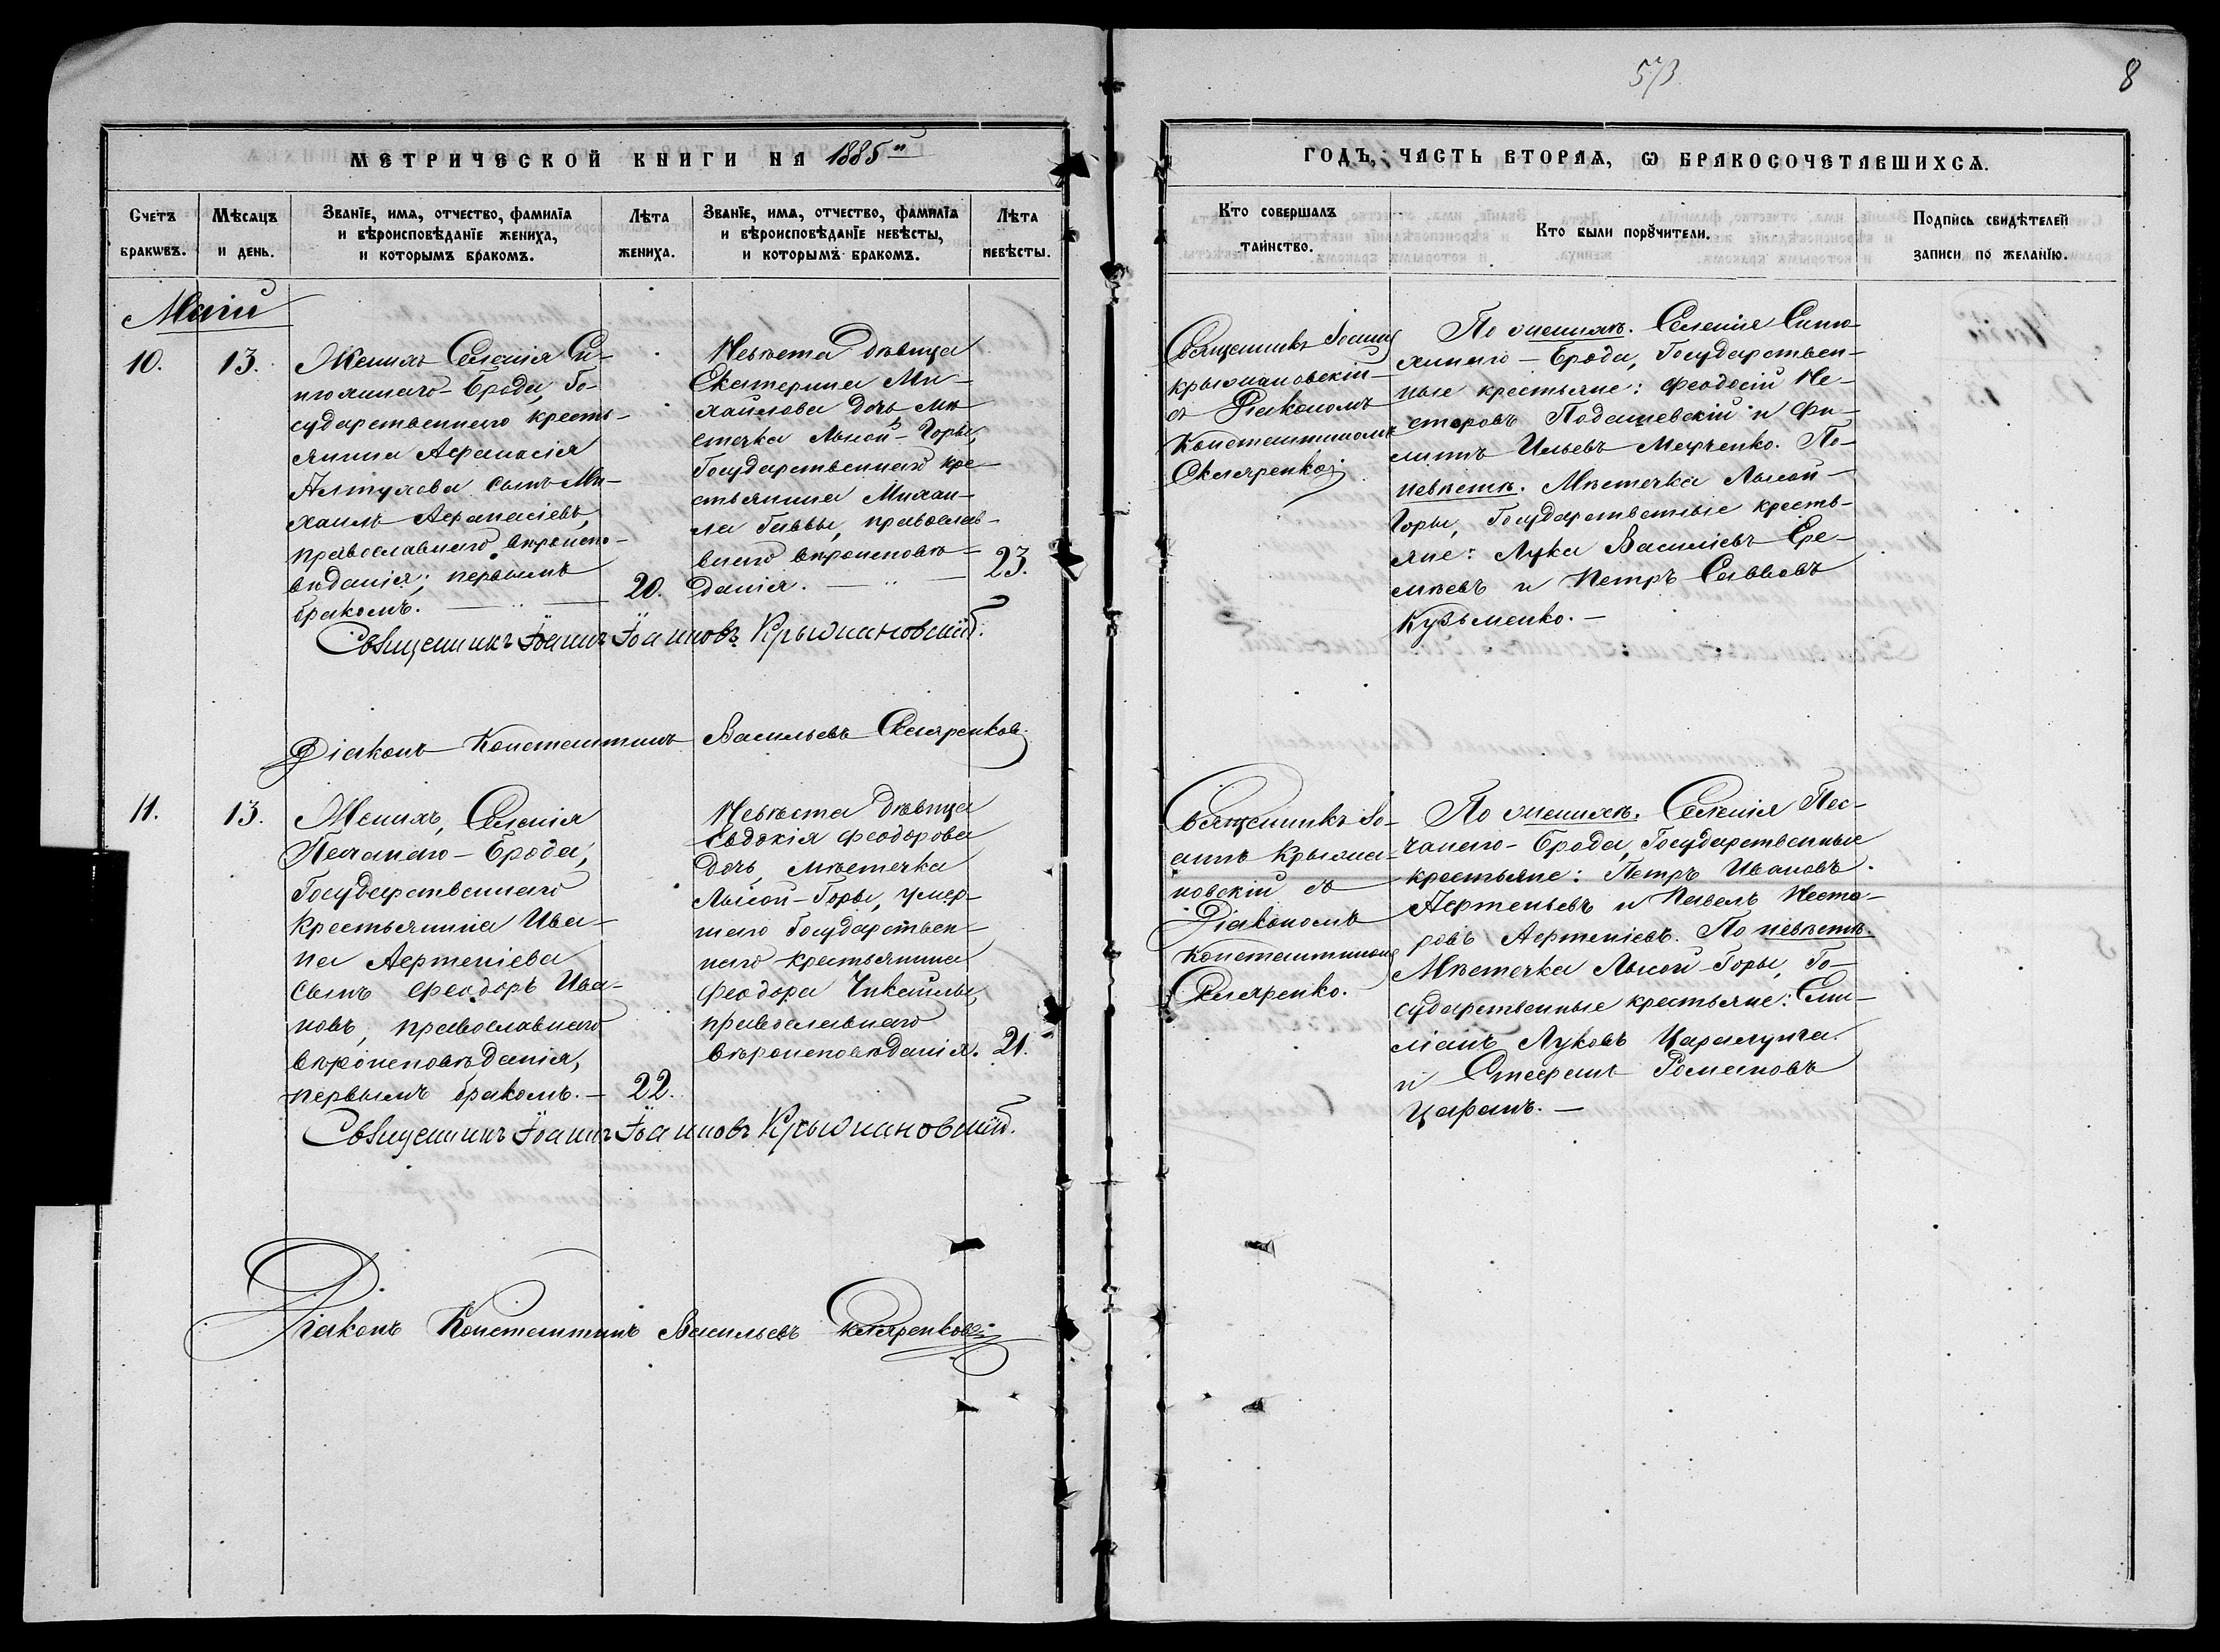 573.
8
МЕТРИЧЕСКОЙ КНИГИ НА 1885й
ГОДЪ, ЧАСТЬ ВТОРАѦ, Ѡ БРАКОСОЧЕТАВШИХСѦ.
Счетъ
бракѡвъ.
Мѣсѧцъ
и день.
Званїе, имѧ, отчество, фамилїѧ
и вѣроисповѣданїе жениха,
и которымъ бракомъ.
Лѣта
жениха.
Званїе, имѧ, отчество, фамилїѧ
и вѣроисповѣданїе невѣсты,
и которымъ бракомъ.
Лѣта
невѣсты.
Кто совершалъ
таинство.
Кто были порꙋчители.
Подпись свидѣтелей
записи по желанїю.
Маій
10.
13.
Женихъ Селенія Си-
нюхинаго-Брода, Го-
сударственнаго кресть-
янина Афанасія
Алтухова сынъ Ми-
хаилъ Афанасіевъ,
православнаго вѣроиспо-
вѣданія; первымъ
бракомъ.
20.
Невѣста дѣвица
Екатерина Ми-
хайлова дочь, мѣ-
стечка Лысой-Горы,
Государственнаго кре-
стьянина Михаи-
ла Саввы, православ-
внаго вѣроисповѣ-
данія.
23.
Священникъ Іоаннъ
Крыжановскій
съ Діакономъ
Константиномъ
Скляренко.
По женихѣ. Селенія Синю-
хинаго-Брода, Государствен-
ные крестьяне: Феодосій Не-
сторовъ Подашевскій и Фи-
липъ Ильевъ Марченко. По
невѣстѣ. Мѣстечка Лысой-
Горы, Государственные кресть-
яне: Лука Василіевъ Ере-
мѣевъ и Петръ Савовъ
Кузьменко.
Священникъ Іоаннъ Іоанновъ Крыжановскій.
Діаконъ Константинъ Васильевъ Скляренковъ.
11.
13.
Женихъ, Селенія
Песчанаго-Брода,
Государственнаго
Крестьянина Ива-
на Артеніева
сынъ Феодоръ Ива-
новъ, православнаго
вѣроисповѣданія,
первымъ бракомъ.
22.
Невѣста дѣвица
Евдокія Феодорова
дочь, мѣстечка
Лысой-Горы, умер-
шаго Государствен-
наго крестьянина
Феодора Чикайлы,
православнаго
вѣроисповѣданія.
21.
Священникъ Іо-
аннъ Крыжа-
новскій съ
Діакономъ
Константиномъ
Скляренко.
По женихѣ. Селенія Пес-
чанаго-Брода, Государственные
крестьяне: Петръ Ивановъ
Артеньевъ и Павелъ Несто-
ровъ Артеніевъ. По невѣстѣ.
Мѣстечка Лысой-Горы, Го-
сударственные крестьяне:
Луковъ
и Стефанъ Романовъ
Царанъ.
Священникъ Іоаннъ Іоанновъ Крыжановскій.
Діаконъ Константинъ Васильевъ Скляренковъ